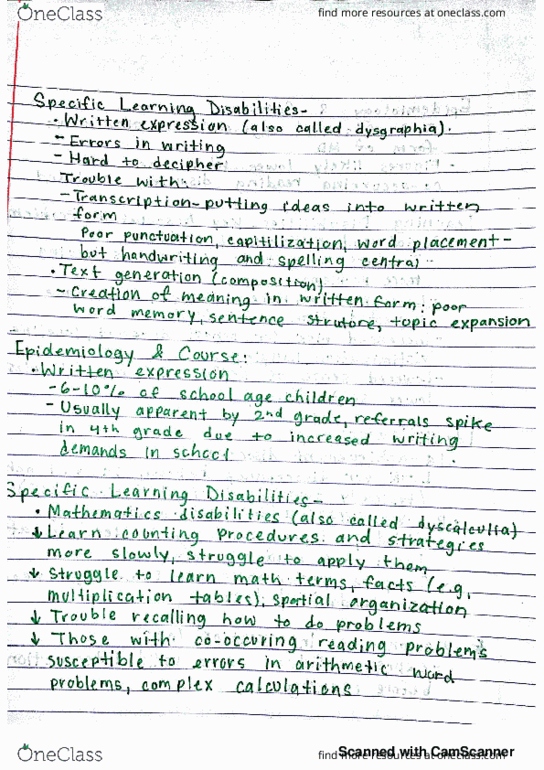 OneClass
find more resources at oneclass.com
Specific Learning Disabilities-
• Written expression (also called dysgraphia).
- Errors in writing
- Hard to decipher
Trouble with:
- Transcription- putting ideas into written
form
Poor punctuation, capitilization, word placement-
but handwriting and spelling central
• Text generation (composition)
- Creation of meaning in written form: poor
word memory, sentence struture, topic expansion
Epidemiology & Course:
• Written expression
- 6-10% of school age children
- Usually apparent by 2nd grade, referrals spike
in 4th grade due to increased writing
demands in school
Specific Learning Disabilities-
• Mathematics disabilities (also called dyscalculia)
↓ Learn counting procedures and strategies
more slowly, struggle to apply them
↓ Struggle to learn math terms, facts (e.g.
multiplication tables), spatial organization
↓ Trouble recalling how to do problems
↓ Those with co-occuring reading problems
susceptible to errors in arithmetic word
problems, complex calculations
OneClass
find more resources at oneclass.com
Scanned with CamScanner